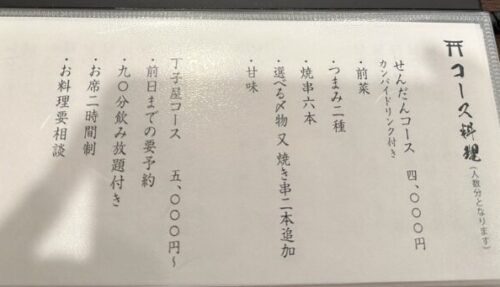 コース料理(人数分となります)
せんだんコース 四、〇〇〇円
カンパイドリンク付き
・前菜
・つまみ二種
・焼串六本
・選べる〆物 又 焼き串二本追加
・甘味
丁子屋コース 五、〇〇〇円~
・前日までの要予約
・九〇分飲み放題付き
・お席二時間制
・お料理要相談